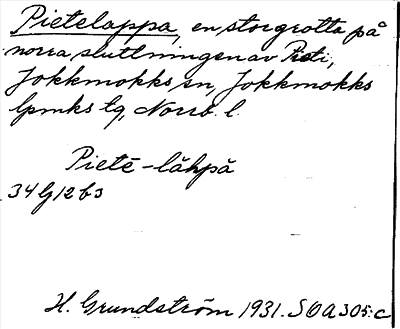 Pietelappa, en storgrotta på
norra sluttningen av Pieti,
Jokkmokks sn, Jokkmokks
lpmks tg, Norrb. l.
Pietē-låhpå
34 G 12 b 3
H. Grundström 1931. SOA 305:c